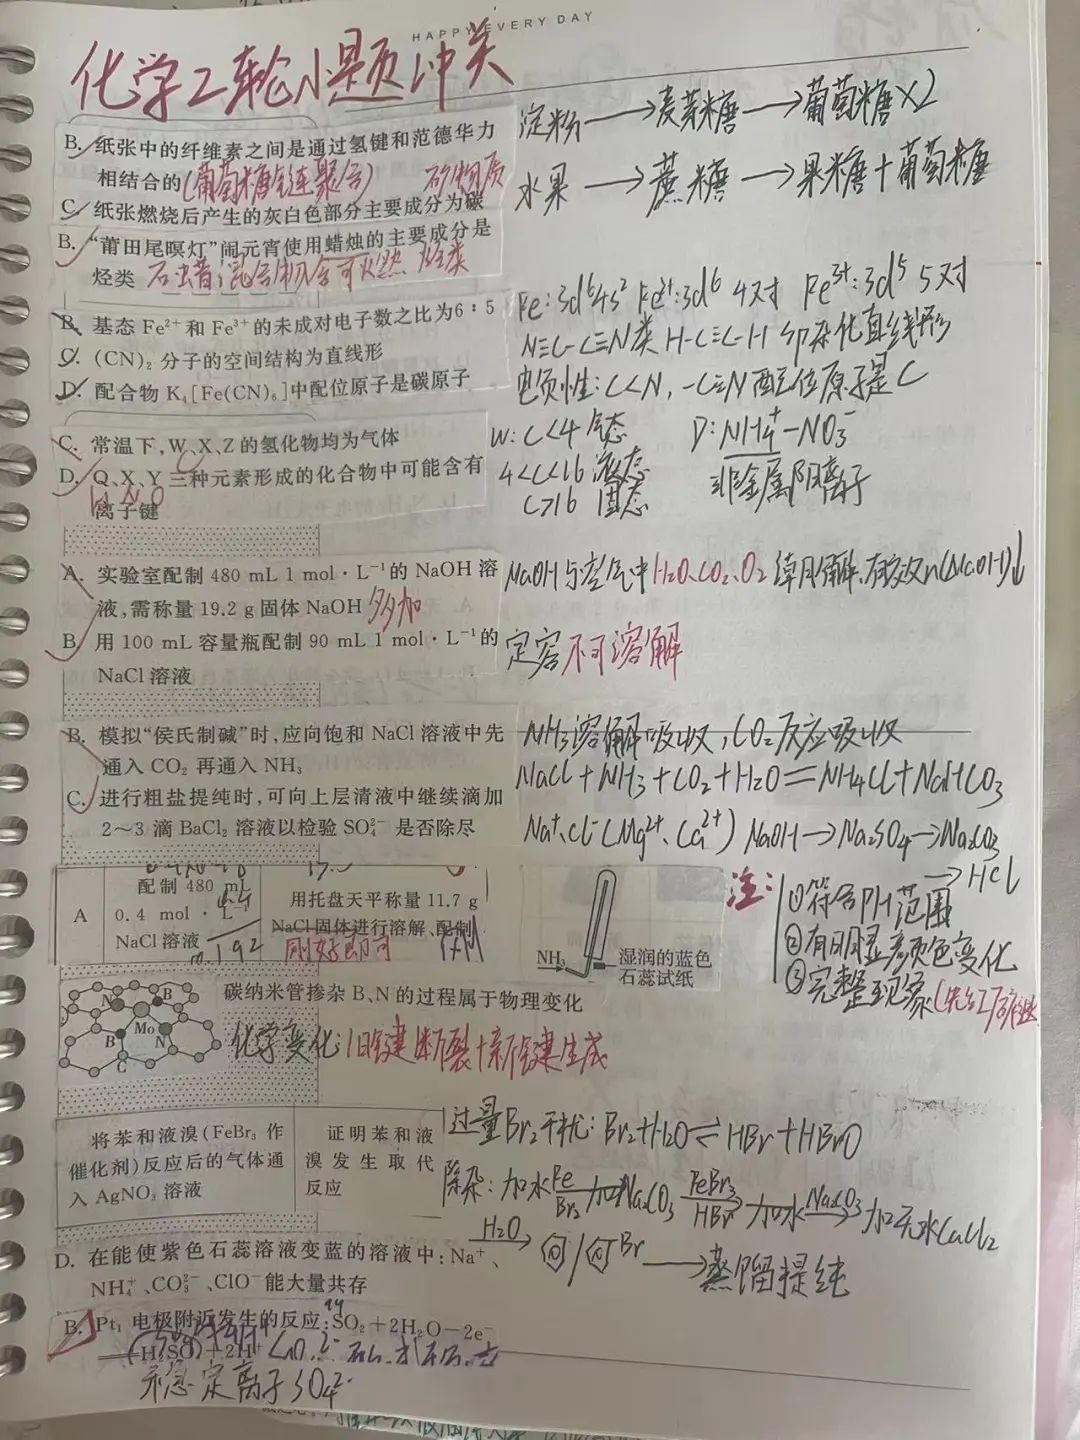 HAPPY EVERY DAY
化学二轮小题冲关
B. 纸张中的纤维素之间是通过氢键和范德华力
相结合的(葡萄糖链聚合) 矿物质
C. 纸张燃烧后产生的灰白色部分主要成分为碳
淀粉→麦芽糖→葡萄糖×2
水果→蔗糖→果糖+葡萄糖
B. “莆田尾暝灯”闹元宵使用蜡烛的主要成分是
烃类 石蜡:混合物含可燃 烃类
B. 基态 Fe²⁺ 和 Fe³⁺ 的未成对电子数之比为6∶5
C. (CN)₂ 分子的空间结构为直线形
D. 配合物 K₄[Fe(CN)₆]中配位原子是碳原子
Fe:3d⁶4s² Fe²⁺:3d⁶ 4对 Fe³⁺:3d⁵ 5对
N≡C-C≡N类 H-C≡C-H 杂化直线形
电负性:C<N, -C≡N 配位原子是C
C. 常温下,W、X、Z 的氢化物均为气体
D. Q、X、Y 三种元素形成的化合物中可能含有
H N O
离子键
W:C<4 气态
4<C<16 液态
C>16 固态
D:NH₄⁺-NO₃⁻
非金属阴离子
A. 实验室配制 480 mL 1 mol·L⁻¹的 NaOH 溶
液,需称量 19.2 g 固体 NaOH 多加
NaOH与空气中H₂O、CO₂、O₂ 有效n(NaOH)↓
B. 用 100 mL 容量瓶配制 90 mL 1 mol·L⁻¹的
NaCl 溶液
定容不可溶解
B. 模拟“侯氏制碱”时,应向饱和 NaCl 溶液中先
通入 CO₂ 再通入 NH₃
NH₃溶解吸收,CO₂反应吸收
NaCl+NH₃+CO₂+H₂O=NH₄Cl+NaHCO₃
C. 进行粗盐提纯时,可向上层清液中继续滴加
2～3 滴 BaCl₂ 溶液以检验 SO₄²⁻ 是否除尽
Na⁺、Cl⁻(Mg²⁺、Ca²⁺) NaOH→Na₂SO₄→Na₂CO₃
→HCl
A
配制 480 mL
0.4 mol·L⁻¹
NaCl 溶液
用托盘天平称量 11.7 g
NaCl 固体进行溶解、配制
刚好即可
NH₃
湿润的蓝色
石蕊试纸
注:
①符合PH范围
②有明显颜色变化
③完整现象
N B Mo B N C
碳纳米管掺杂 B、N 的过程属于物理变化
化学变化:旧键断裂+新键生成
将苯和液溴(FeBr₃ 作
催化剂)反应后的气体通
入 AgNO₃ 溶液
证明苯和液
溴发生取代
反应
过量Br₂干扰:Br₂+H₂O⇌HBr+HBrO
除杂:加水 Fe Br₂ 加Na₂CO₃ FeBr₃ HBr 加水 Na₂CO₃ 加无水CaCl₂
H₂O Br →蒸馏提纯
D. 在能使紫色石蕊溶液变蓝的溶液中:Na⁺、
NH₄⁺、CO₃²⁻、ClO⁻能大量共存
B. Pt₁ 电极附近发生的反应:SO₂+2H₂O−2e⁻
H₂SO₄+2H⁺
示稳定离子SO₄²⁻